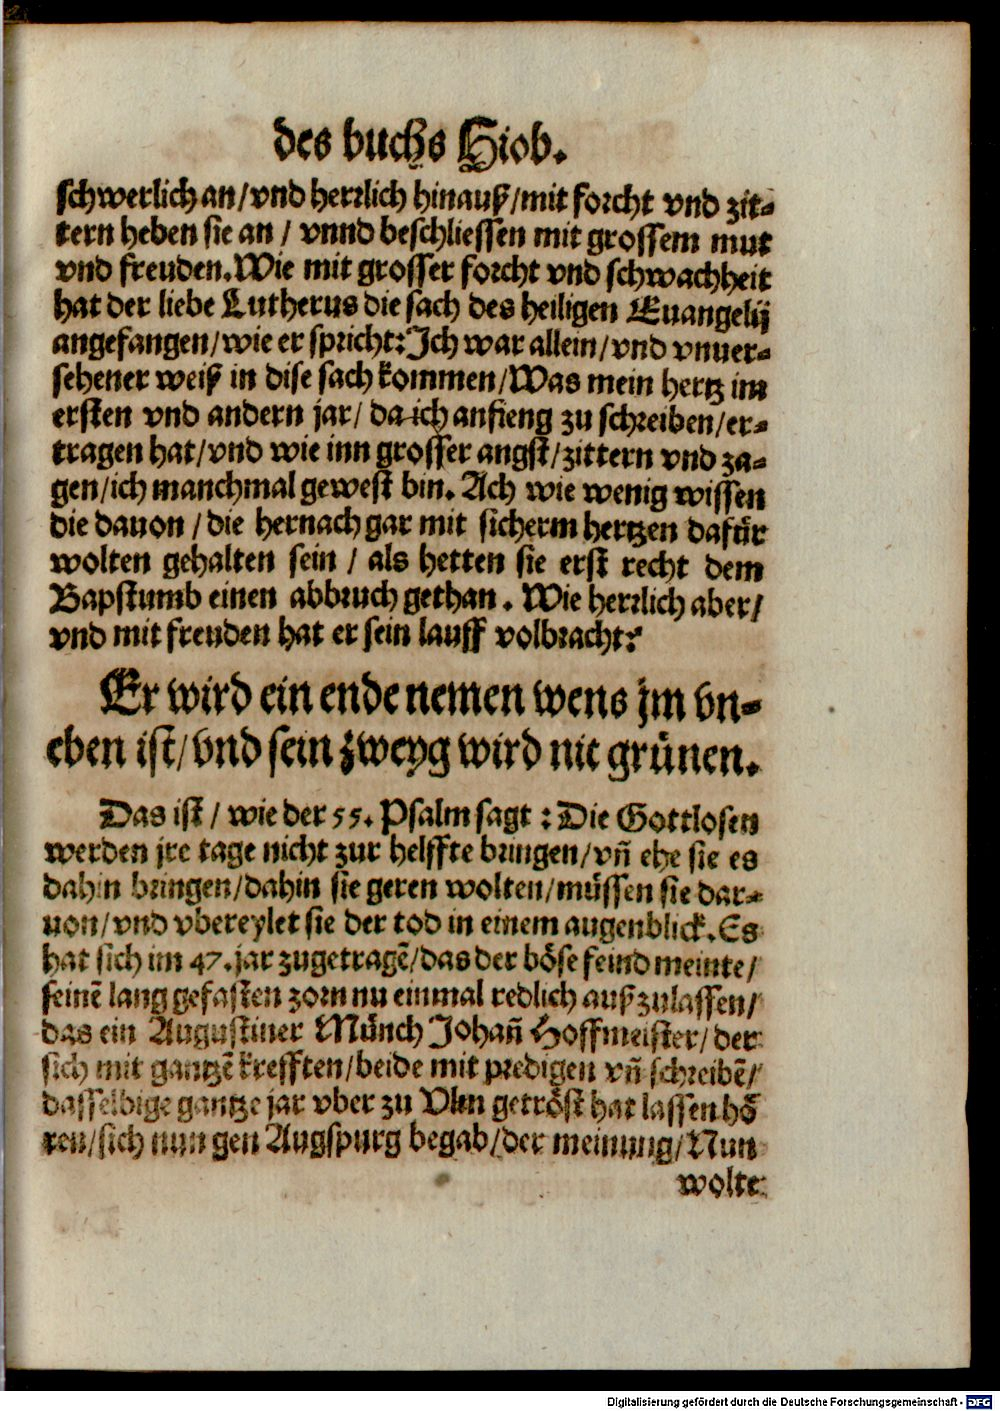 des buchs Hiob.
schwerlich an/vnd herrlich hinauß/mit forcht vnd zit-
tern heben sie an / vnnd beschliessen mit grossem mut
vnd freuden. Wie mit grosser forcht vnd schwachheit
hat der liebe Lutherus die sach des heiligen Euangelij
angefangen/wie er spricht: Ich war allein/vnd vnuer-
sehener weiß in dise sach kommen/Was mein hertz im
ersten vnd andern jar/ da ich anfieng zu schreiben/er-
tragen hat/vnd wie inn grosser angst/zittern vnd za-
gen/ich manchmal gewest bin. Ach wie wenig wissen
die dauon / die hernach gar mit sicherm hertzen dafür
wolten gehalten sein / als hetten sie erst recht dem
Bapstumb einen abbruch gethan. Wie herrlich aber/
vnd mit freuden hat er sein lauff volbracht:
Er wird ein ende nemen wens jm vn-
eben ist/vnd sein zweyg wird nit grünen.
Das ist / wie der 55. Psalm sagt : Die Gottlosen
werden jre tage nicht zur helffte bringen/vñ ehe sie es
dahin bringen/dahin sie geren wolten/müssen sie dar-
uon/vnd vbereylet sie der tod in einem augenblick. Es
hat sich im 47. jar zugetragẽ/das der böse feind meinte/
seinẽ lang gefasten zorn nu einmal redlich außzulassen/
das ein Augustiner Münch Johañ Hoffmeister/ der
sich mit gantzẽ krefften/beide mit predigen vñ schreibẽ/
dasselbige gantze jar vber zu Vlm getröst hat lassen hö
ren/sich nun gen Augspurg begab/der meinung/Nun
wolte
Digitalisierung gefördert durch die Deutsche Forschungsgemeinschaft - DFG